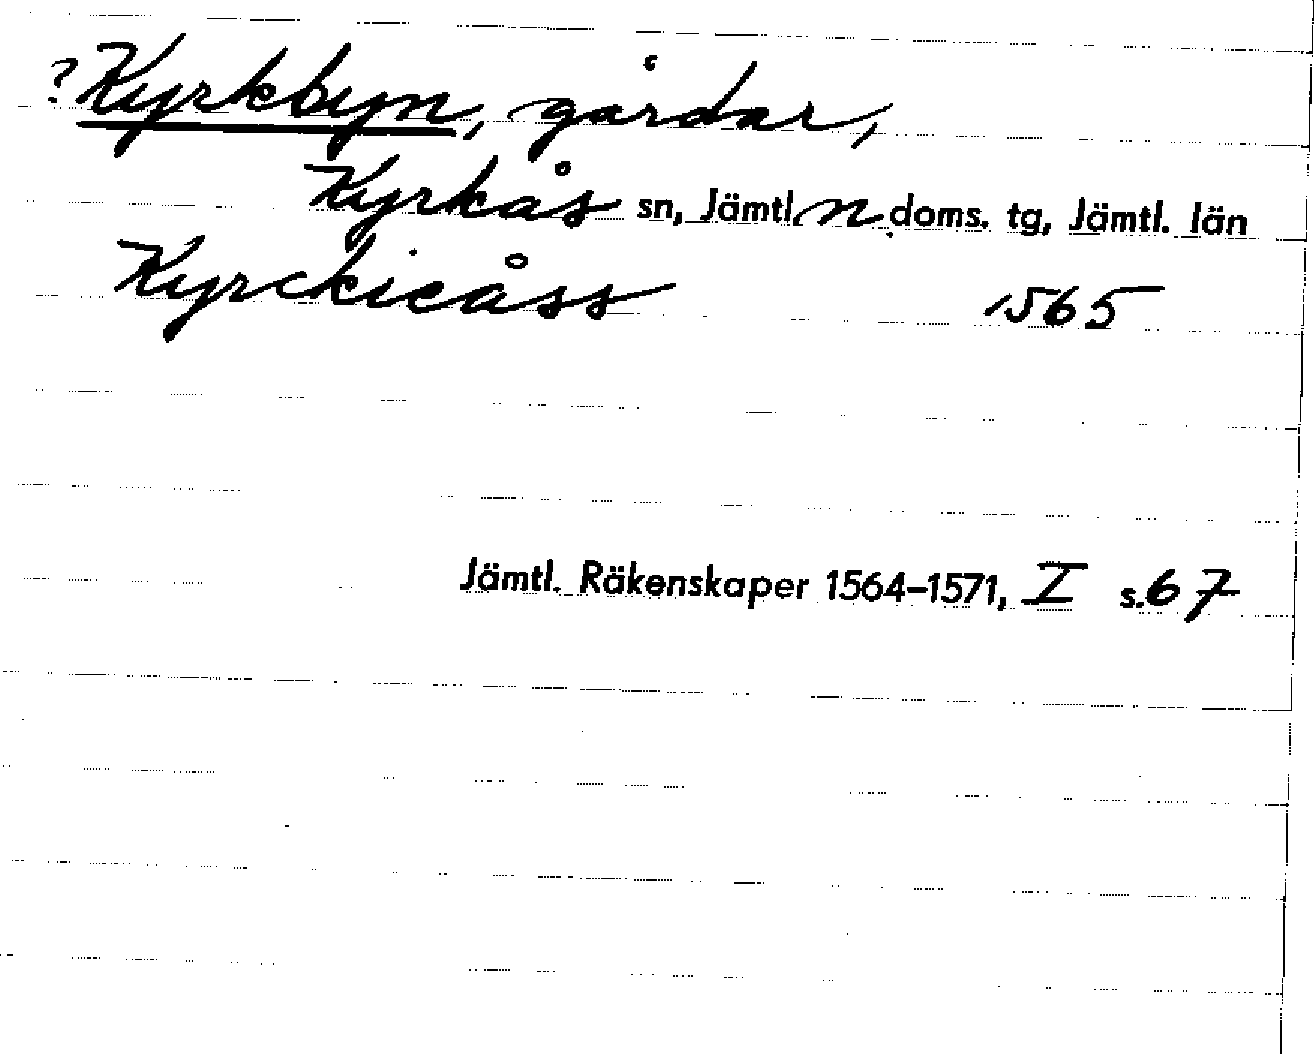 ?Kyrkbyn, gårdar,
Kyrkås sn, Jämtl. n doms. tg, Jämtl. län
Kyrckieåss 1565
Jämtl. Räkenskaper 1564–1571, I s. 67